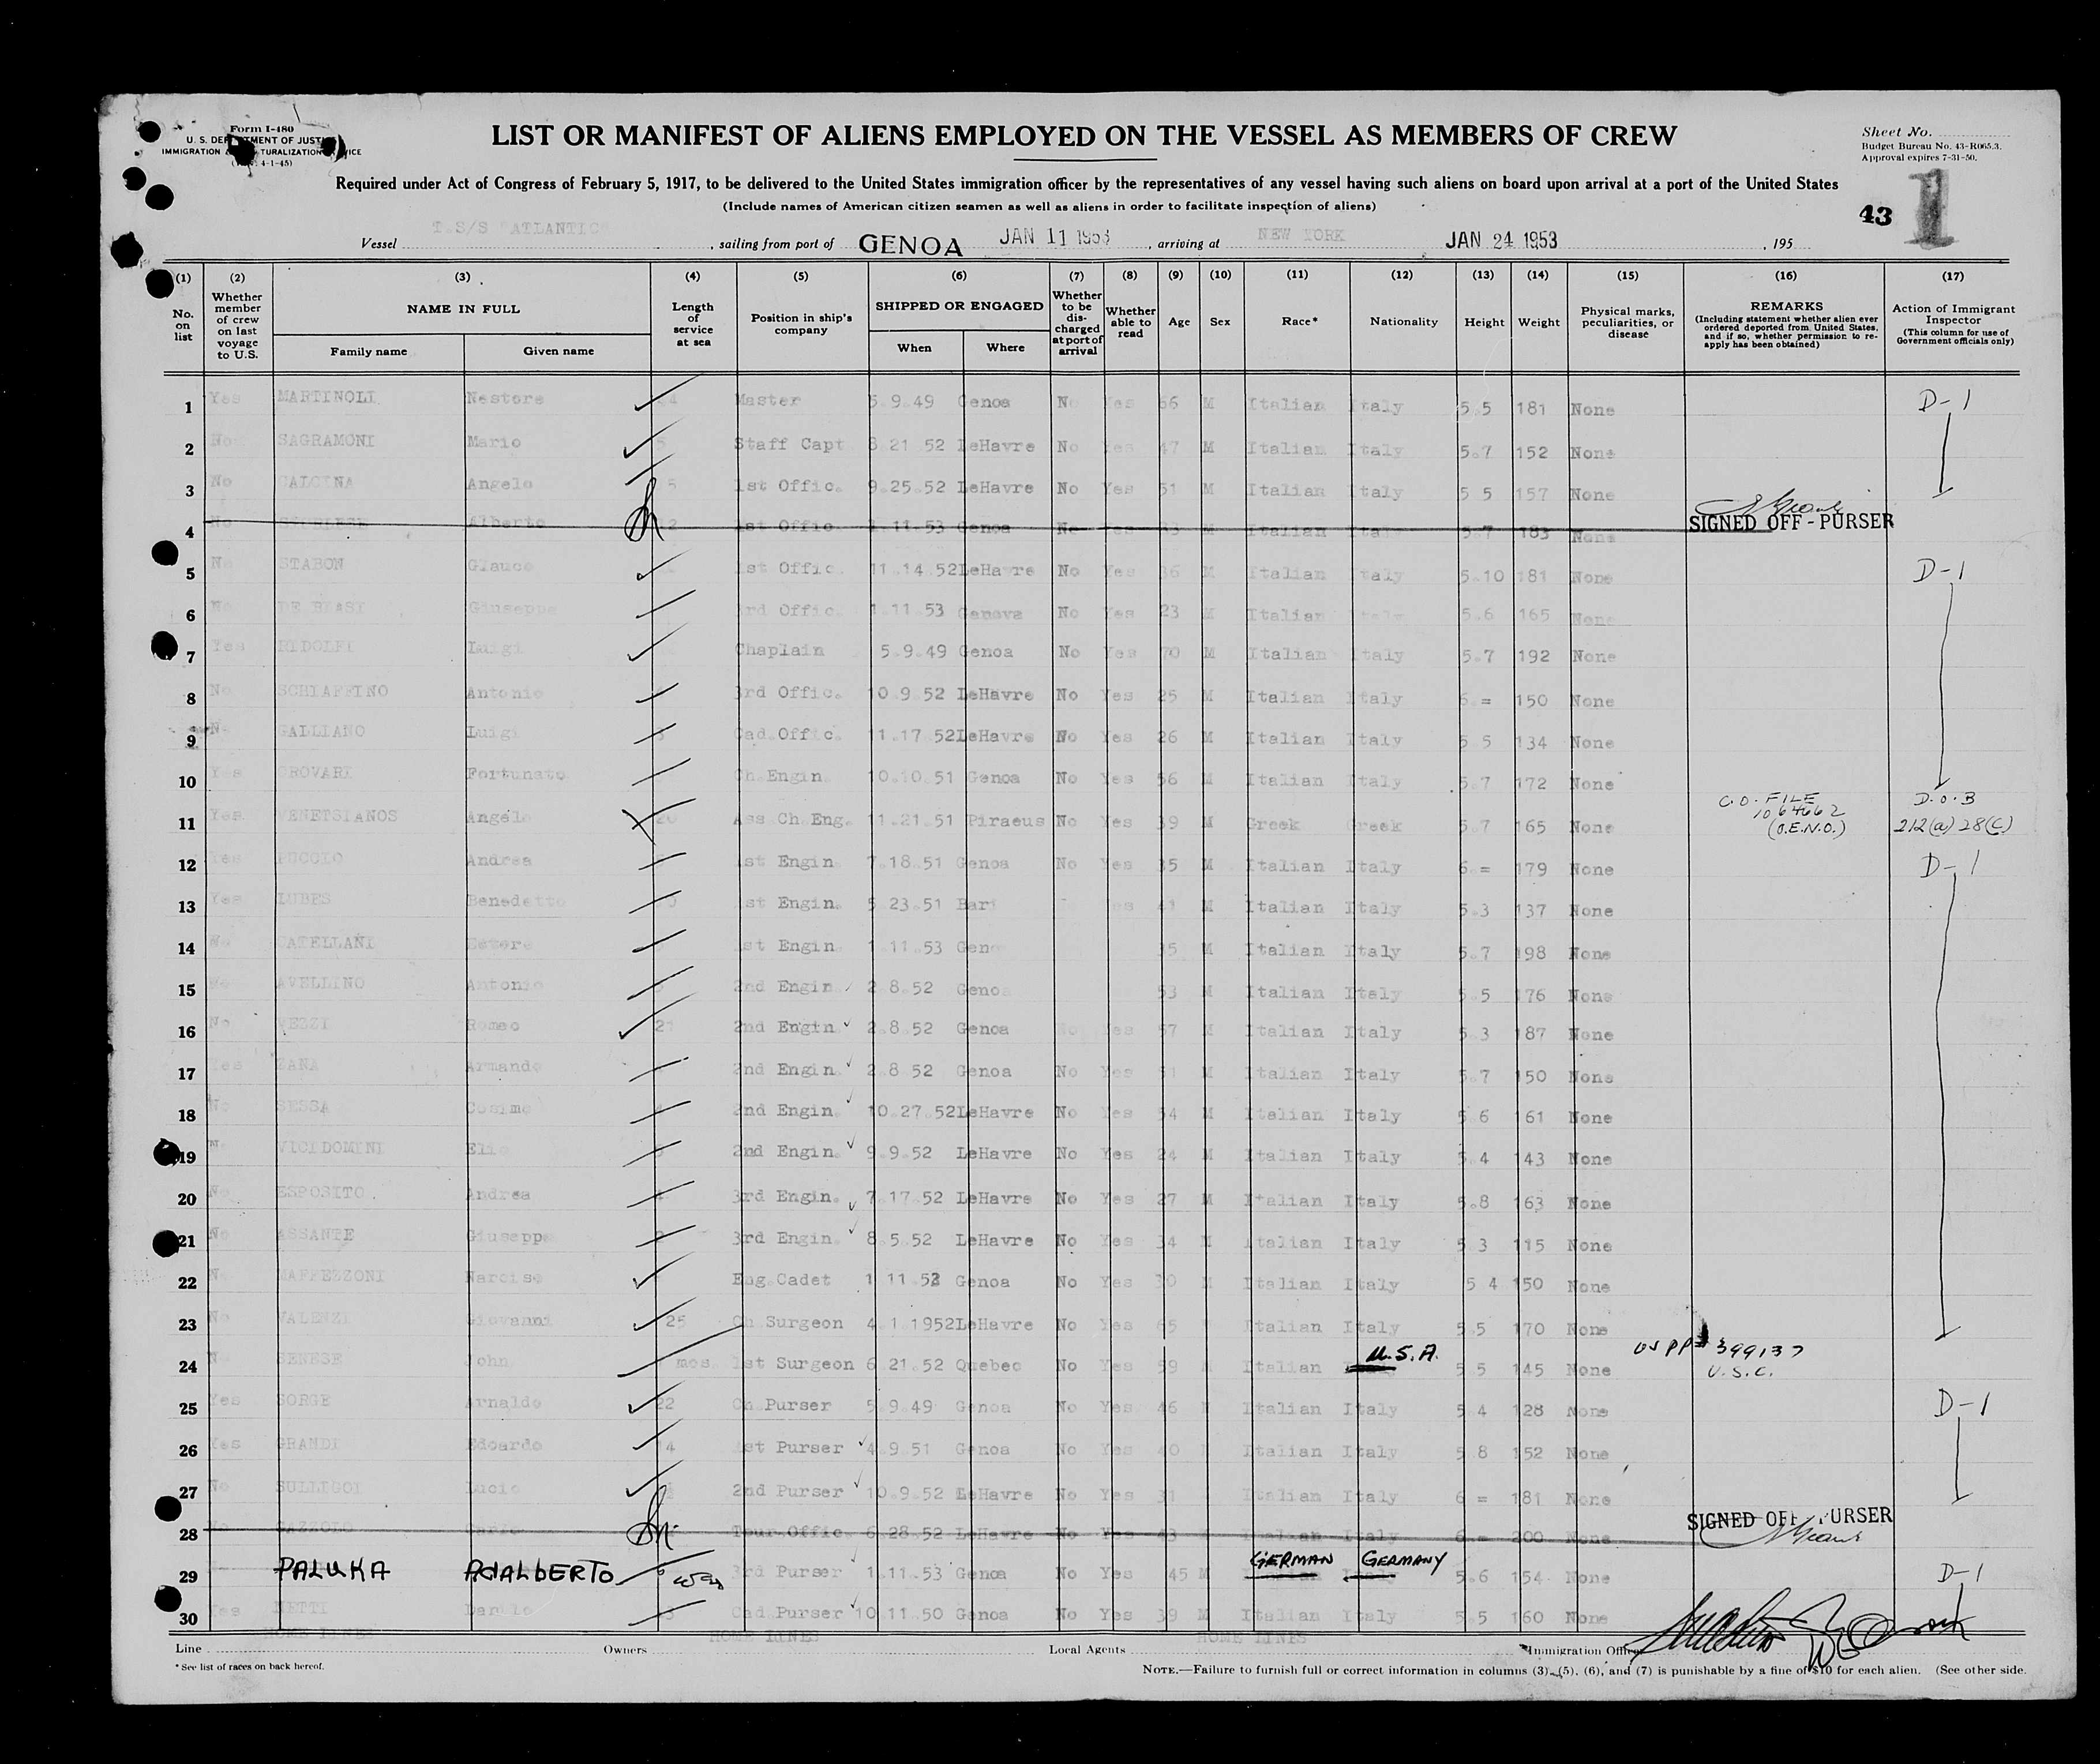 Form I-480
U. S. DEPARTMENT OF JUSTICE
IMMIGRATION NATURALIZATION SERVICE
4-1-45)
LIST OR MANIFEST OF ALIENS EMPLOYED ON THE VESSEL AS MEMBERS OF CREW
Sheet No.
Budget Bureau No. 43-R065.3.
Approval expires 7-31-50.
Required under Act of Congress of February 5, 1917, to be delivered to the United States immigration officer by the representatives of any vessel having such aliens on board upon arrival at a port of the United States
(Include names of American citizen seamen as well as aliens in order to facilitate inspection of aliens)
43 1
Vessel T.S/S "ATLANTIC" , sailing from port of GENOA JAN 11 1953 , arriving at NEW YORK JAN 24 1953 , 195
(1) (2) (3) (4) (5) (6) (7) (8) (9) (10) (11) (12) (13) (14) (15) (16) (17)
No. on list
Whether member of crew on last voyage to U.S.
NAME IN FULL
Family name Given name
Length of service at sea
Position in ship's company
SHIPPED OR ENGAGED
When Where
Whether to be discharged at port of arrival
Whether able to read
Age Sex Race* Nationality Height Weight
Physical marks, peculiarities, or disease
REMARKS
(Including statement whether alien ever ordered deported from United States, and if so, whether permission to reapply has been obtained)
Action of Immigrant Inspector
(This column for use of Government officials only)
1 Yes MARTINOLI Nestore Master 5.9.49 Genoa No Yes 66 M Italian Italy 5.5 181 None D-1
2 No SAGRAMONI Mario Staff Capt 8 21 52 LeHavre No Yes 47 M Italian Italy 5.7 152 None
3 No CALCINA Angelo 1st Offic. 9.25.52 LeHavre No Yes 51 M Italian Italy 5 5 157 None
4 No Alberto 1st Offic 1.11.53 Genoa No Yes 33 M Italian Italy 5.7 183 None SIGNED OFF - PURSER
5 No STABON Glauco 1st Offic. 11.14.52 LeHavre No Yes 36 M Italian Italy 5.10 181 None D-1
6 No DE BIASI Giuseppe 3rd Offic. 1.11.53 Genova No Yes 23 M Italian Italy 5.6 165 None
7 Yes RIDOLFI Luigi Chaplain 5.9.49 Genoa No Yes 70 M Italian Italy 5.7 192 None
8 No SCHIAFFINO Antonio 3rd Offic. 10.9.52 LeHavre No Yes 25 M Italian Italy 6.= 150 None
9 No GALLIANO Luigi Cad.Offic. 11.17.52 LeHavre No Yes 26 M Italian Italy 5 5 134 None
10 Yes CROVARI Fortunato Ch.Engin. 10.10.51 Genoa No Yes 56 M Italian Italy 5.7 172 None
11 Yes VENETSIANOS Angelo Ass Ch Eng. 11.21.51 Piraeus No Yes 39 M Greek Greek 5.7 165 None C.O. FILE D.O.B
1064662
(O.E.N.O.) 212(a)28(C)
12 Yes PUCCIO Andrea 1st Engin 7.18.51 Genoa No Yes 35 M Italian Italy 6 = 179 None D-1
13 Yes LUBES Benedetto 1st Engin. 5 23.51 Bari Yes 41 M Italian Italy 5.3 137 None
14 No CATELLANI Ettore 1st Engin 1.11.53 Geno 35 M Italian Italy 5.7 198 None
15 No AVELLINO Antonio 2nd Engin 2.8.52 Genoa 53 M Italian Italy 5.5 176 None
16 No VEZZI Romeo 21 2nd Engin 2.8.52 Genoa No Yes 57 M Italian Italy 5.3 187 None
17 Yes ZANA Armando 2nd Engin. 2.8 52 Genoa No Yes 51 M Italian Italy 5.7 150 None
18 No SESSA Cosimo 2nd Engin. 10.27.52 LeHavre No Yes 54 M Italian Italy 5 6 161 None
19 No VICIDOMINI Elio 2nd Engin. 9.9.52 LeHavre No Yes 24 M Italian Italy 5.4 143 None
20 No ESPOSITO Andrea 3rd Engin. 7.17.52 LeHavre No Yes 27 M Italian Italy 5.8 163 None
21 No ASSANTE Giuseppe 3rd Engin. 8.5.52 LeHavre No Yes 34 M Italian Italy 5 3 115 None
22 No MAFFEZZONI Narciso Eng.Cadet 1.11.53 Genoa No Yes 30 M Italian Italy 5 4 150 None
23 No VALENZI Giovanni 25 Ch Surgeon 4.1.1952 LeHavre No Yes 65 Italian Italy 5.5 170 None
24 No SENESE John mos. 1st Surgeon 6.21.52 Quebec No Yes 59 M Italian U.S.A. 5 5 145 None US PP# 399137
U.S.C.
25 Yes SORGE Arnaldo 22 Ch Purser 5.9.49 Genoa No Yes 46 Italian Italy 5 4 128 None D-1
26 Yes GRANDI Edoardo 4 1st Purser 4.9.51 Genoa No Yes 40 Italian Italy 5 8 152 None
27 No SULLIGOI Lucio 2nd Purser 10.9.52 LeHavre No Yes 31 Italian Italy 6 = 181 None
28 No GAZZOLO Tour.Offic. 6.28.52 LeHavre No Yes 43 Italian Italy 6 = 200 None SIGNED OFF PURSER
29 PALUKA ADALBERTO 3rd Purser 1.11.53 Genoa No Yes 45 M GERMAN GERMANY 5.6 154 None D-1
30 Yes NETTI Danilo Cad.Purser 10.11.50 Genoa No Yes 39 M Italian Italy 5.5 160 None
Line HOME LINES Owners HOME LINES Local Agents HOME LINES Immigration Officer
* See list of races on back hereof.
NOTE.—Failure to furnish full or correct information in columns (3), (5), (6), and (7) is punishable by a fine of $10 for each alien. (See other side.